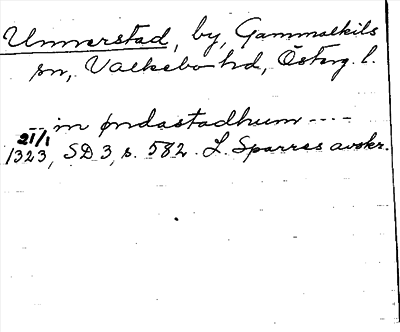 Unnerstad, by, Gammalkils
sn, Valkebo hd, Österg. l.
--- in øndastadhum ----
21/1
1323, SD 3, s. 582. L. Sparres avskr.